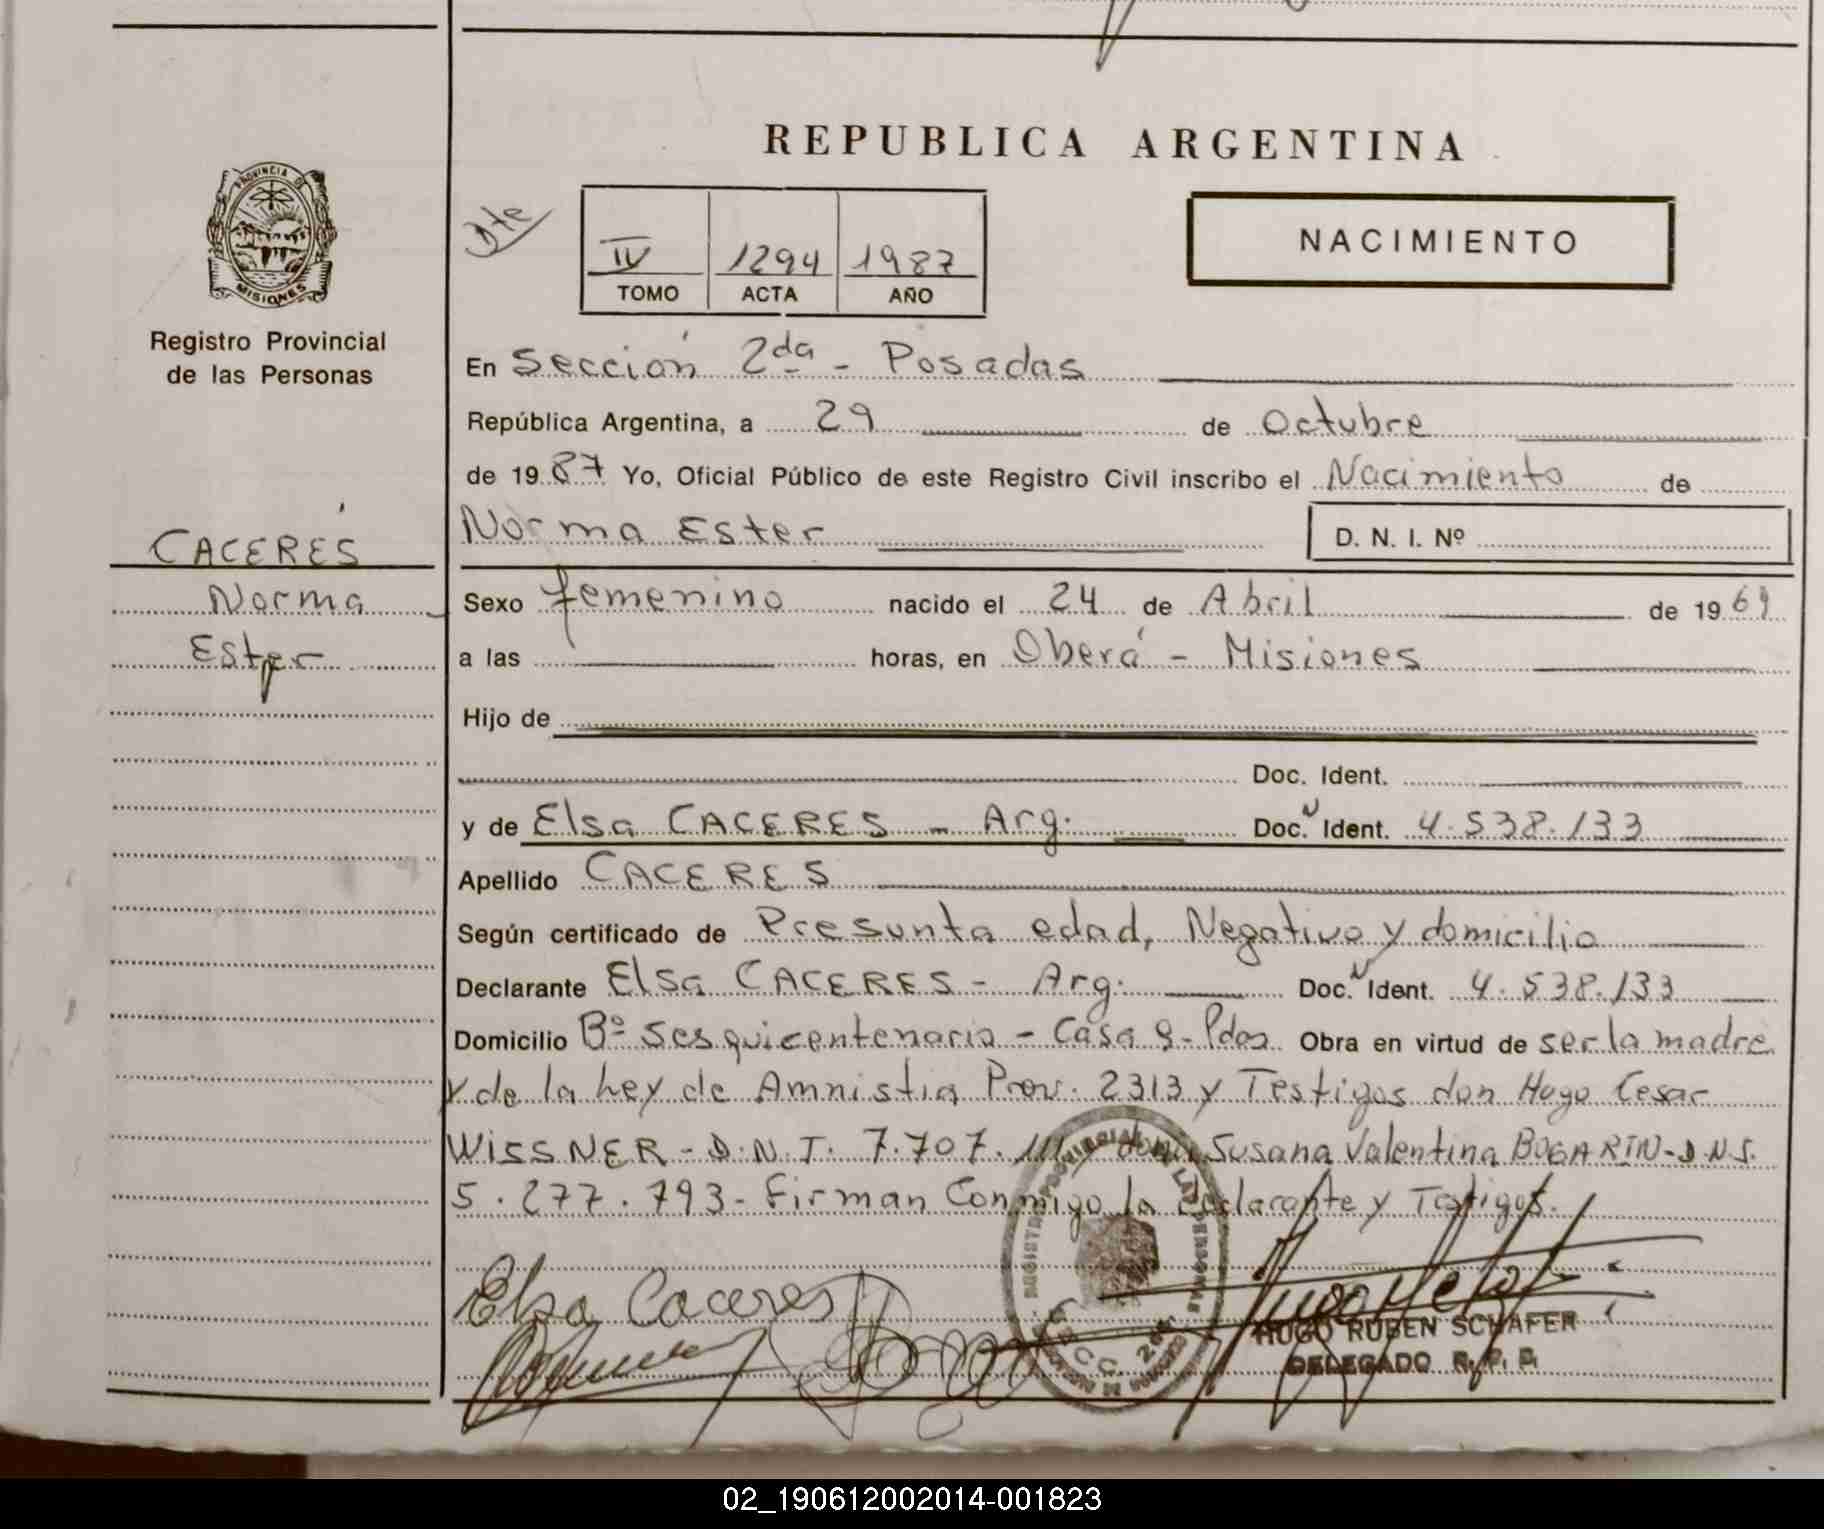 REPUBLICA ARGENTINA
PROVINCIA DE MISIONES
Registro Provincial
de las Personas
Dte
IV 1294 1987
TOMO ACTA AÑO
NACIMIENTO
En Sección 2da - Posadas
República Argentina, a 29 de Octubre
de 1987 Yo, Oficial Público de este Registro Civil inscribo el Nacimiento de
Norma Ester D. N. I. Nº
CACERES
Norma
Ester
Sexo femenino nacido el 24 de Abril de 1969
a las horas, en Oberá - Misiones
Hijo de
Doc. Ident.
y de Elsa CACERES - Arg. Doc. Ident. 4.538.133
Apellido CACERES
Según certificado de Presunta edad, Negativo y domicilio
Declarante Elsa CACERES - Arg. Doc. Ident. 4.538.133
Domicilio Bº Sesquicentenario - Casa 8 - Pdas Obra en virtud de ser la madre
y de la Ley de Amnistia Prov. 2313 y Testigos don Hugo Cesar
WISSNER - D.N.I. 7.707.111 y doña Susana Valentina BOGARIN - D.N.I.
5.277.793 - Firman Conmigo la Declarante y Testigos.
Elsa Caceres
HUGO RUBEN SCHAFER
DELEGADO R. P. P.
02_190612002014-001823